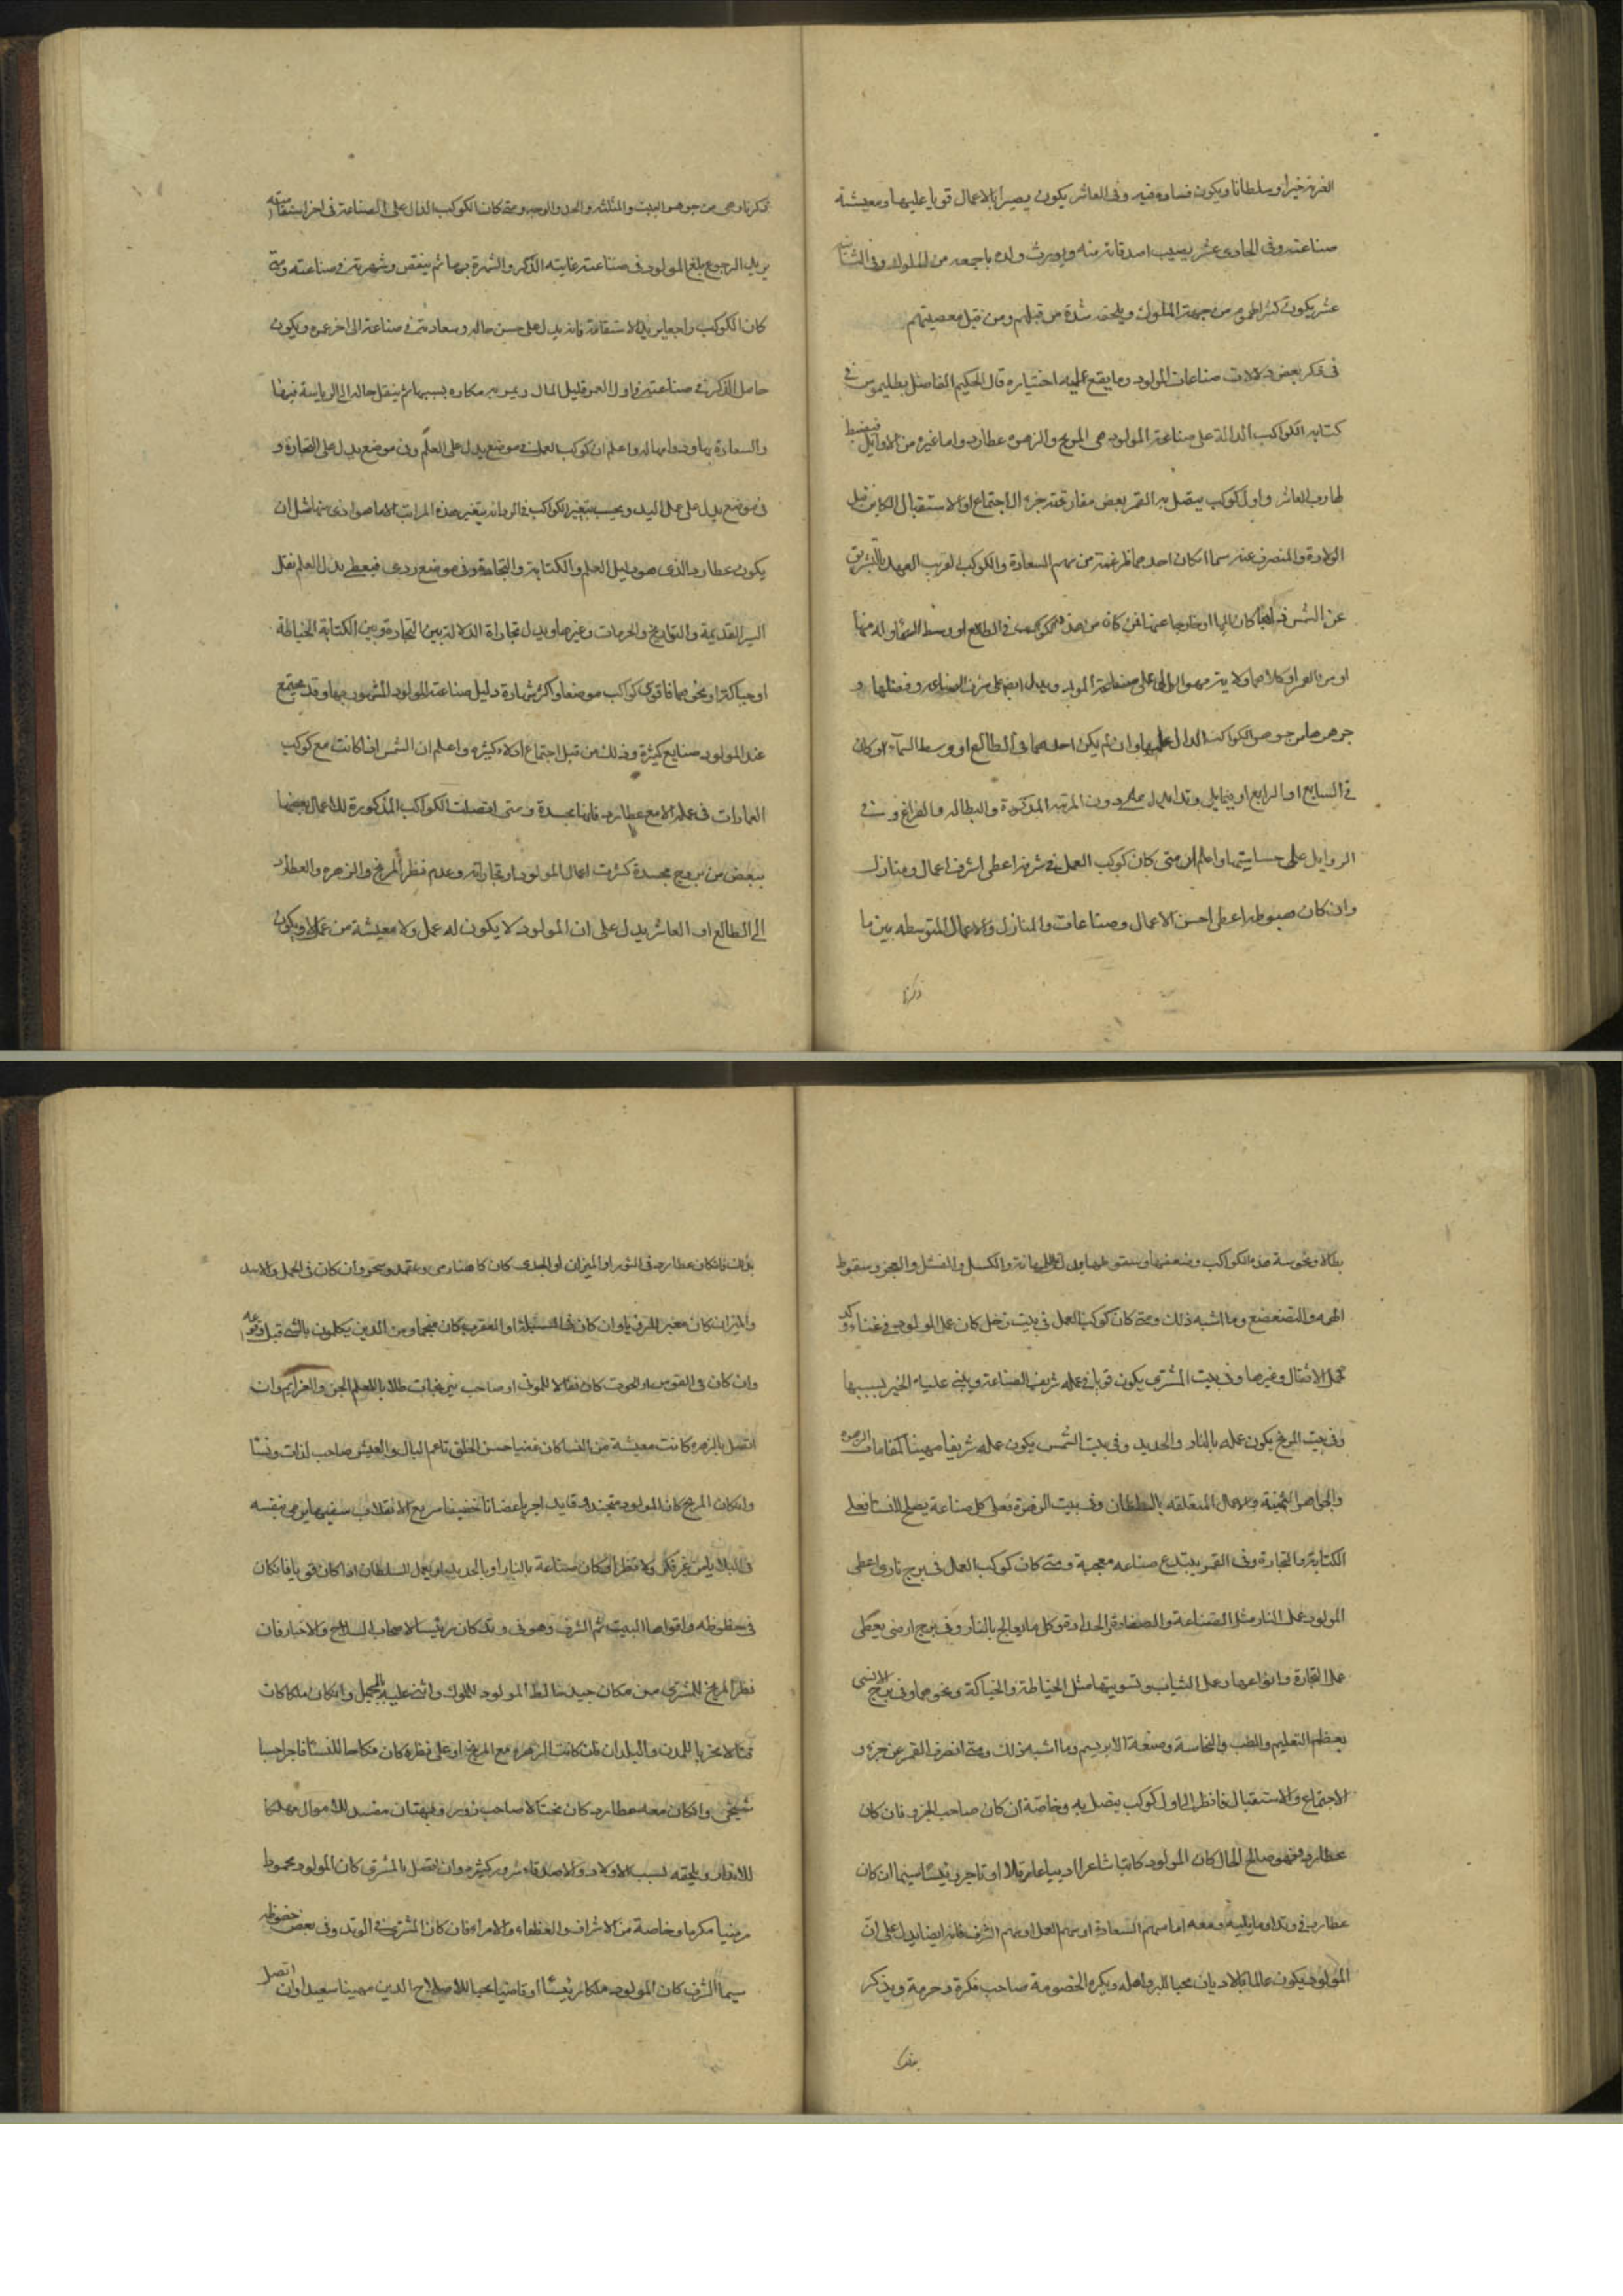 الغربة خيرا وسلطانا ويكون فساده فيه وفى العاشر يكون بصيرا بالاعمال قويا عليها ومعيشة
صناعته وفى الحادى عشر يصيب اصدقائه منه ويورث ولده ما جمعه من الملوك وفى الثانى
عشر يكون كثير الهموم من جهة الملوك ويلحقه شدة من قبلهم ومن قبل معصيتهم
فى ذكر بعض دلالات صناعات المولود وما يقع عليه اختياره قال الحكيم الفاضل بطليموس فى
كتابه الكواكب الدالة على صناعة المولود هى المريخ والزهره عطارد واما غيره من الاوايل
العاشر واول كوكب يتصل به القمر بعض مفارقته جزء الاجتماع او الاستقبال الكاين قبل
الولادة والمنصرف عنه سيما ان كان احدهما من سهم السعادة والكوكب القريب العهد بالتشريق
عن الشمس كان كوكب فى الطالع او وسط السماء
او من القمر او كلاهما ولا على صناعة المولود ويدل ايضا على شرف الصناعه وفضلها و
جوهرها من جوهر الكواكب الدال عليها وان لم يكن احدهما فى الطالع او وسط السمآء او كان
فى السابع او الرابع او فيما يلى وتدا دون المرتبه المذكورة والبطاله والفراغ وفى
الزوايل على خساستها واعلم ان متى كان كوكب العمل فى شرفه اعطى اشرف اعمال ومنازل
وان كان هبوطه اعطى اخس الاعمال وصناعات والمنازل والاعمال المتوسطه بين ما
ذكرنا
ذكرنا وهى من جوهر البيت والمثلثه والحد والوجه ومتى كان الكوكب الدال على الصناعة فى اخر استقامته
يريد الرجوع بلغ المولود فى صناعته غاية الذكر والشهرة بها ثم ينقص وشهرته فى صناعته ومتى
كان الكوكب راجعا يريد الاستقامة فانه يدل على حسن حاله وسعادته فى صناعة الى اخر عمره ويكون
حامل الذكر فى صناعته فى اول العمر قليل المال ويمر به مكاره بسببها ثم ينقل حاله الى الرياسة فيها
والسعادة بها ودوامها له واعلم ان كوكب العمل فى موضع يدل على العلم وفى موضع يدل على التجارة و
فى موضع يدل على عمل اليد وبحسب تغير الكواكب فى الزمان يتغير هذه المراتب مثل ان
يكون عطارد الذى هو دليل العلم والكتابة والتجارة وفى موضع ردى فيعطى بدل العلم نقل
السير القديمة والتواريخ والخرافات وغيرها ويدل تجارة الدلالة بين التجارة وبين الكتابة الخياطة
او حياكة او نحوهما فاقوى كواكب موضعا واكثر شهادة دليل صناعة المولود المشهور بها وقد يجتمع
عند المولود صنايع كثيرة وذلك من قبل اجتماع ادلاء كثيره واعلم ان الشمس اذا كانت مع كوكب
العادات فى عمله الا مع عطارد فانها مجسدة ومتى اتصلت الكواكب المذكورة للاعمال بعضها
ببعض من بروج مجسدة كثرت اعمال المولود وتجاراته وعدم نظر المريخ والزهره والعطارد
الى الطالع او العاشر يدل على ان المولود لا يكون له عمل ولا معيشة من عمل او يكون
بطالا ونحوسة هذه الكواكب وضعفها وسقوطها يدل على المهانة والكسل والفشل والعجز وسقوط
الهمه والتضعضع وما اشبه ذلك ومتى كان كوكب العمل فى بيت زحل كان عمل المولود فى عناء وكد
كحمل الاثقال وغيرها وفى بيت المشترى يكون قويا فى عمله شريف الصناعة ويثنى عليه الخير بسببها
وفى بيت المريخ يكون عمله بالنار والحديد وفى بيت الشمس يكون عمله شريفا مهيبا
والجواهر الثمينة والاعمال المتعلقه بالسلطان وفى بيت الزهرة فعلى كل صناعة يصلح للنساء فعلى
الكتابة والتجارة وفى القمر يبتدع صناعه معجبة ومتى كان كوكب العمل فى برج نارى اعطى
المولود عمل النار مثل الصناعة والصفارة والحدادة وكل ما يعالج بالنار وفى برج ارضى يعطى
عمل التجارة وانواعها وعمل الثياب وتسويتها مثل الخياطة والحياكة ونحوهما وفى برج الانسى
يعطى التعليم والطب والنخاسة وصنعة الابريسم وما اشبه ذلك ومتى انصرف القمر عن جزء و
الاجتماع والاستقبال فانظر الى اول كوكب يتصل به وخاصة ان كان صاحب الجزو فان كان
عطارد وهو صالح الحال كان المولود كاتبا شاعرا اديبا عاقلا او تاجر رئيسًا سيما ان كان
عطارد فى وتد او ما يليه ومعه اما سهم السعادة او سهم العمل او سهم الشرف فانه ايضا يدل على ان
المولود يكون عالما بالاديان محبا للبر واهله ويكره الخصومة صاحب فكرة وحرمة ويذكر
بذلك
بذلك فان كان عطارد فى الثور او الميزان او الجدى كان كاهنا وان كان فى الحمل والاسد
والميزان كان معبر للرؤيا وان كان فى السنبلة او العقرب كان منجما ومن الذين يتكلمون بالشى قبل وقوعه
وان كان فى القوس او الحوت كان نقالا للموتى او صاحب نيرنجات طالبا للعلم الجن والعزايم وان
اتصل بالزهره كانت معيشة من النسا كان غنيا حسن الخلق ناعم البال والعيش صاحب لذات ونسا
وان كان المريخ كان المولود متجندا قايد اجريا غضبانا خفيفا سريع الانقلاب سفيها يرمى بنفسه
فى البلايا من غير فكر ولا نظر او كان صناعة بالنار او بالحديد او يعمل للسلطان اذا كان قويا فان كان
فى حظوظه واقواها البيت ثم الشرف وهو فى وتد كان رئيسا لاصحاب السلاح والاخبار فان
نظر المريخ للمشترى من مكان جيد خالط المولود للملوك واثنى عليه بالجميل وان كان ملكا كان
قتالا مخربا للمدن والبلدان فان كانت الزهره مع المريخ او على نظره كان منكاحا للنسا فاجرا
وان كان معه عطارد كان محتالا صاحب زور وبهتان مفسد للاموال مهلكا
للاقدار ويلحقه لسبب الاولاد والاصدقاء شرور كثيره وان اتصل بالمشترى كان المولود محمودا
مرضيا مكرما وخاصة من الاشراف والعظماء والامراء فان كان المشترى فى الوتد وفى بعض حظوظه
سيما الشرف كان المولود ملكا رئيسًا او قاضيا محبا للاصلاح الدين مهيبا سعيدا وان اتصل